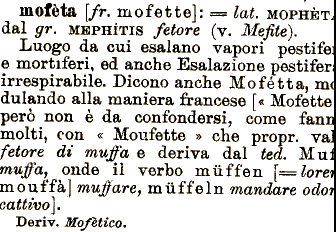 mofèta [fr. mofette]: = lat. MOPHÈT
dal gr. MEPHÌTIS fetore (v. Mefite).
Luogo da cui esalano vapori pestife
e mortiferi, ed anche Esalazione pestifer
irrespirabile. Dicono anche Mofétta, m
dulando alla maniera francese [« Mofette
però non è da confondersi, come fann
molti, con « Moufette » che propr. val
fetore di muffa e deriva dal ted. Muf
muffa, onde il verbo müffen [= loren
mouffà] muffare, müffeln mandare odor
cattivo].
Deriv. Mofètico.